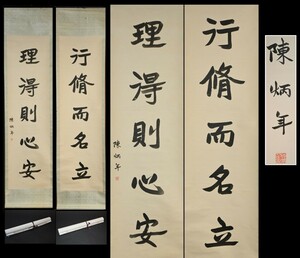 行脩而名立
理得則心安
陳炳年
行脩而名立
理得則心安
陳炳年
陳炳年